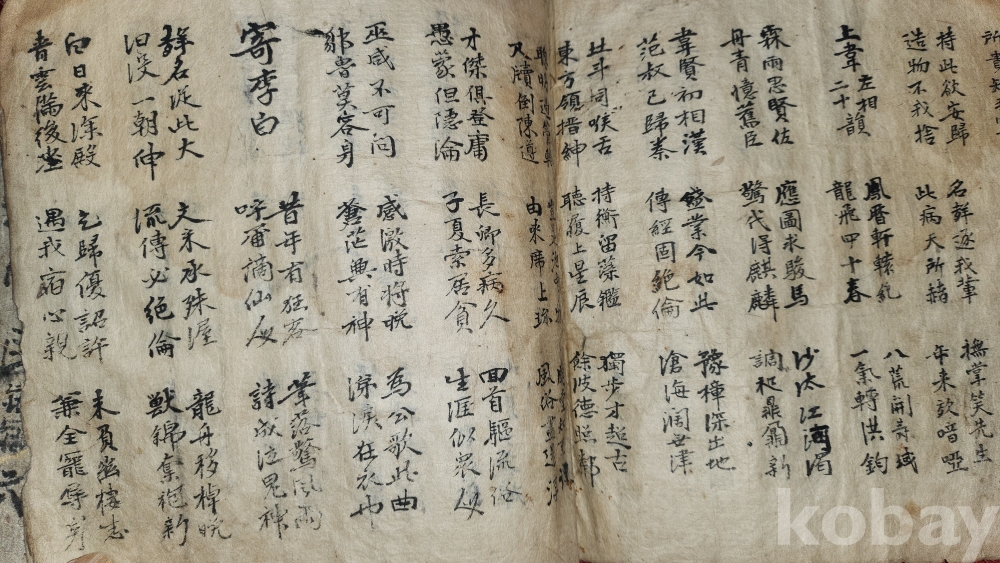 所書知
持此欲安歸
造物不我捨
名群逐我輩
此病天所赭
撫掌笑先生
年来效喑啞
上韋左相二十韻
鳳曆軒轅紀
龍飛四十春
八荒開壽域
一氣轉洪鈞
霖雨思賢佐
丹青憶舊臣
應圖求駿馬
驚代得麒麟
沙汰江河濁
調和鼎鼐新
韋賢初相漢
范叔已歸秦
盛業今如此
傳經固絶倫
豫樟深出地
滄海闊無津
北斗司喉舌
東方領搢紳
持衡留藻鑑
聽履上星辰
獨步才超古
餘波德照鄰
聰明過管
尺牘倒陳遵
由來席上珎
風俗盡還淳
才傑俱登庸
愚蒙但隱淪
長卿多病久
子夏索居貧
回首驅流俗
生涯似衆人
巫咸不可问
鄒魯莫容身
感激時將晚
蒼茫興有神
為公歌此曲
涕淚在衣巾
寄李白
昔年有狂客
呼爾謫仙人
筆落驚風雨
詩成泣鬼神
聲名從此大
汩没一朝伸
文采承殊渥
流傳必絶倫
龍舟移棹晚
獸錦奪袍新
白日来深殿
青雲滿後塵
乞歸優詔許
遇我宿心親
未負幽棲志
兼全寵辱身
kobay